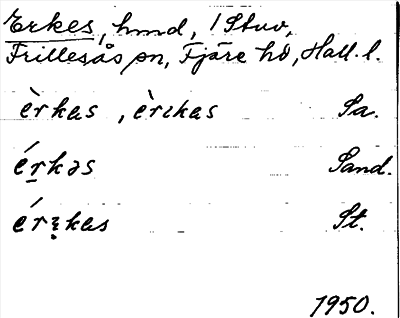 Erkes, hmd, 1 Stuv,
Frillesås sn, Fjäre hd, Hall. l.
èrkas , èrıkas Sa.
érkəs Sand.
kas St.
1950.